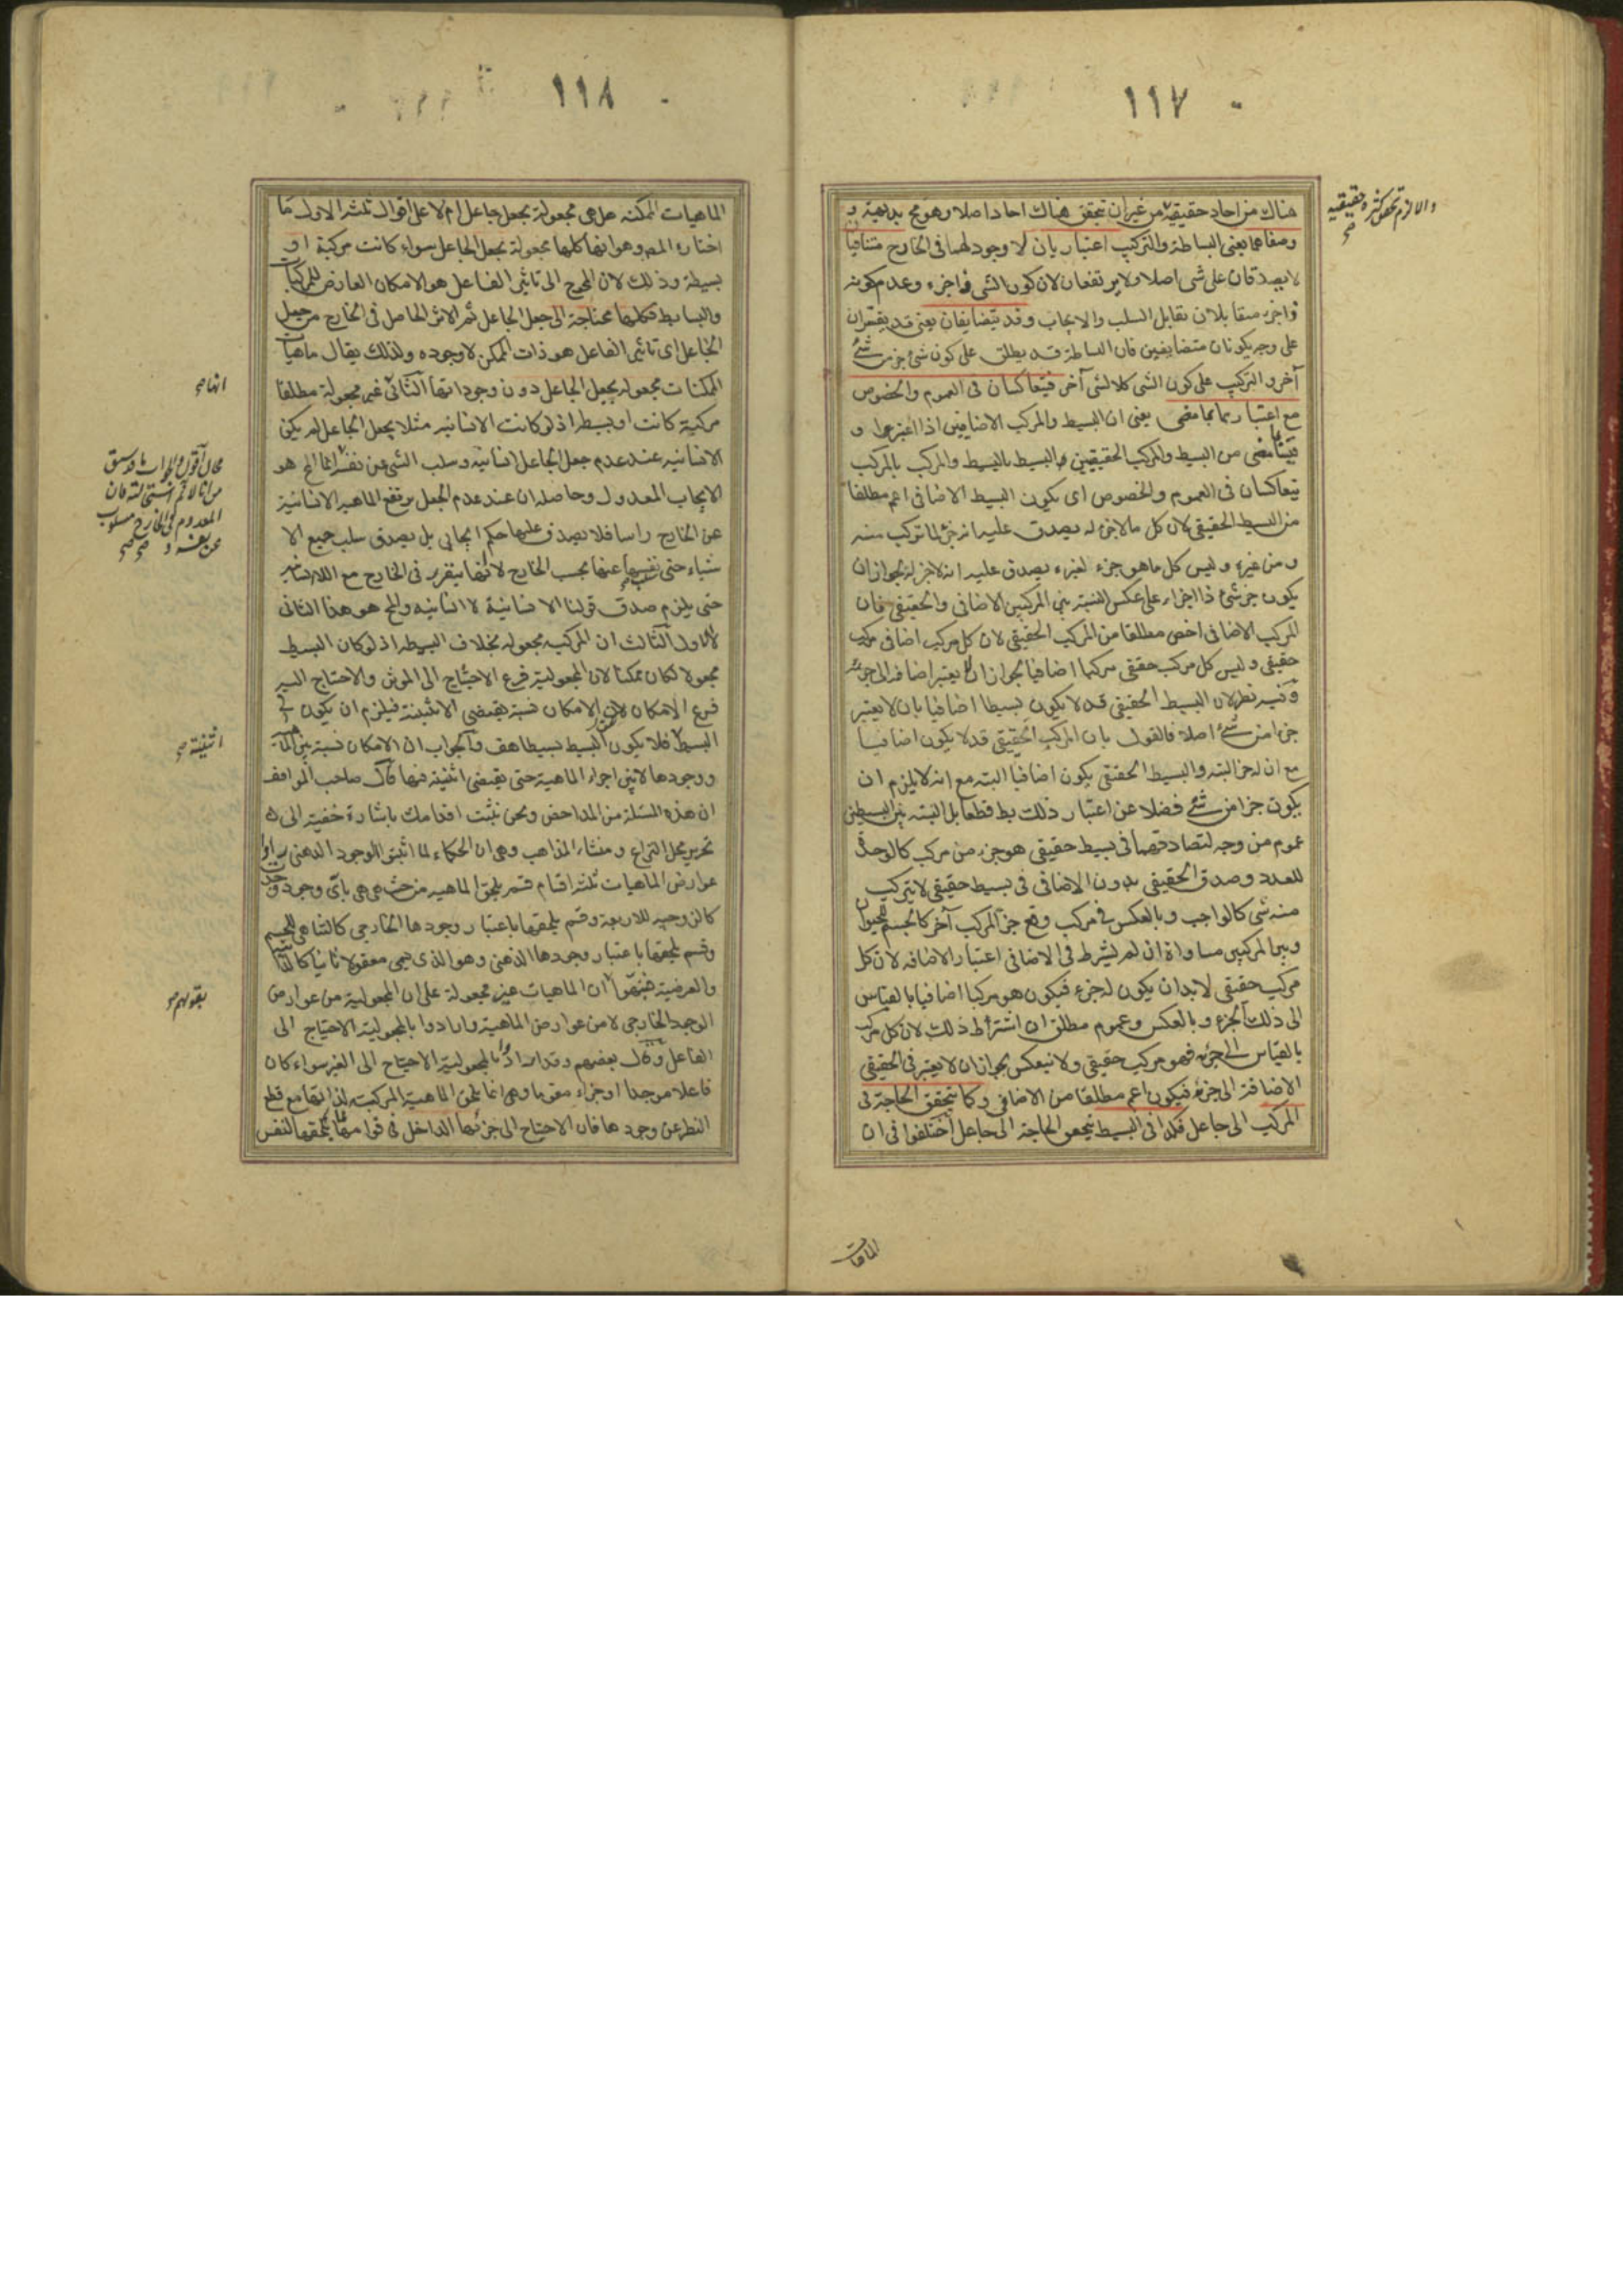 ١١٧
هناك من احاد حقيقية من غير ان يتحقق هناك احاد اصلا وهو مح بديهة و
وصفاهما يعنى البساطة والتركيب اعتباريان لا وجود لهما فى الخارج متنافيان
لا يصدقان على شى اصلا ولا يرتفعان لان كون الشى ذا جزء وعدم كونه
ذا جزء متقابلان تقابل السلب والايجاب وقد يتضايفان يعنى قد يعتبران
على وجه يكونان متضايفين فان البساطة قد يطلق على كون شئ جزء من شئ
آخر والتركيب على كون الشى كلا لشى آخر فيتعاكسان فى العموم والخصوص
مع اعتبارهما بما مضى يعنى ان البسيط والمركب الاضافيين اذا اعتبرا و
قيسا بما مضى من البسيط والمركب الحقيقيين البسيط بالبسيط والمركب بالمركب
يتعاكسان فى العموم والخصوص اى يكون البسيط الاضافى اعم مطلقا
من البسيط الحقيقى لان كل ما لا جزء له يصدق عليه انه جزء لما تركب منه
ومن غيره وليس كل ما هو جزء لغيره يصدق عليه انه لا جزء له لجواز ان
يكون جزء شئ ذا اجزاء على عكس النسبة بين المركبين الاضافى والحقيقى فان
المركب الاضافى اخص مطلقا من المركب الحقيقى لان كل مركب اضافى مركب
حقيقى وليس كل مركب حقيقى مركبا اضافيا لجواز ان لا يعتبر اضافته الى جزئه
وفيه نظر لان البسيط الحقيقى قد لا يكون بسيطا اضافيا بان لا يعتبر
جزءا من شئ اصلا فالقول بان المركب الحقيقى قد لا يكون اضافيا
مع ان له جزء البته والبسيط الحقيقى يكون اضافيا البته مع انه لا يلزم ان
يكون جزا من شئ فضلا عن اعتبار ذلك بط قطعا بل النسبة بين البسيطين
عموم من وجه لتصادقهما فى بسيط حقيقى هو جزء من مركب كالوحدة
للعدد وصدق الحقيقى بدون الاضافى فى بسيط حقيقى لا يتركب
منه شى كالواجب وبالعكس فى مركب وقع جزء المركب آخر كالجسم للحيوان
وبين المركبين مساواة ان لم يشرط فى الاضافى اعتبار الاضافه لان كل
مركب حقيقى لا بد ان يكون له جزء فيكون هو مركبا اضافيا بالقياس
الى ذلك الجزء وبالعكس وعموم مطلق ان اشترط ذلك لان كل مركب
بالقياس الى جزئه فهو مركب حقيقى ولا ينعكس لجواز ان لا يعتبر فى الحقيقى
الاضافة الى جزئه فيكون اعم مطلقا من الاضافى وكما يتحقق الحاجة فى
المركب الى جاعل فكذا فى البسيط يتحقق الحاجة الى جاعل اختلفوا فى ان
الماهيات
١١٨
الماهيات الممكنه هل هى مجعولة بجعل جاعل ام لا على اقوال ثلثه الاول ما
اختاره المص وهو انها كلها مجعولة بجعل الجاعل سواء كانت مركبة او
بسيطة وذلك لان المحوج الى تاثير الفاعل هو الامكان العارض للمركبات
والبسايط فكلها محتاجة الى جعل الجاعل ثم الاثر الحاصل فى الخارج من جعل
الجاعل اى تاثير الفاعل هو ذات الممكن لا وجوده ولذلك يقال ماهيات
الممكنات مجعوله بجعل الجاعل دون وجوداتها الثانى غير مجعولة مطلقا
مركبة كانت او بسيطه اذ لو كانت الانسانيه مثلا بجعل الجاعل لم يكن
الانسانيه عند عدم جعل الجاعل انسانيه وسلب الشى عن نفسه انما المح هو
الايجاب المعدول وحاصله ان عند عدم الجعل يرتفع الماهيه الانسانية
عن الخارج راسا فلا يصدق عليها حكم ايجابى بل يصدق سلب جميع الا
شياء حتى نفسها عنها بحسب الخارج لا انها يتقرر فى الخارج مع اللاانسانيه
حتى يلزم صدق قولنا الانسانية لا انسانيه والمح هو هذا الثانى
لا الاول الثالث ان المركبه مجعوله بخلاف البسيطه اذ لو كان البسيط
مجعولا لكان ممكنا لان المجعولية فرع الاحتياج الى الموثر والاحتياج اليه
فرع الامكان لان الامكان نسبة يقتضى الاثنينة فيلزم ان يكون فى
البسيط فلا يكون البسيط بسيطا هف والجواب ان الامكان نسبة بين الماهية
ووجودها لا بين اجزاء الماهية حتى يقتضى اثنينة فيها قال صاحب المواقف
ان هذه المسئلة من المداحض ونحن نثبت اقدامك باشارة خفية الى
تحرير محل النزاع ومنشاء المذاهب وهى ان الحكماء لما اثبتوا الوجود الذهنى راوا
عوارض الماهيات ثلثة اقسام قسم يلحق الماهيه من حيث هى هى باى وجود وجدت
كالزوجيه للاربعة وقسم يلحقها باعتبار وجودها الخارجى كالتناهى للجسم
وقسم يلحقها باعتبار وجودها الذهنى وهو الذى يسمى معقولا ثانيا كالذاتية
والعرضية فنبهوا ان الماهيات غير مجعولة على ان المجعولية من عوارض
الوجود الخارجى لا من عوارض الماهية وارادوا بالمجعولية الاحتياج الى
الفاعل وقال بعضهم وقد ارادوا بالمجعولية الاحتياج الى الغير سواء كان
فاعلا موجدا او جزاء مقوما وهى انما يلحق الماهية المركبة لذاتها مع قطع
النظر عن وجودها فان الاحتياج الى جزئها الداخل فى قوامها يلحقها لنفس
والا لزم تحقق كثرة حقيقيه
صح
انها صح
اثنينة صح
بقولهم صح